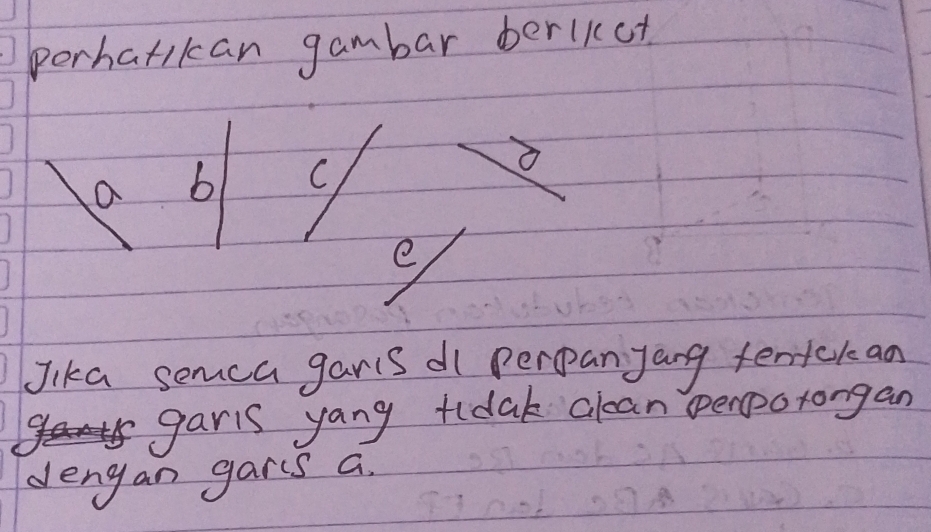 perhatikan gambar berikut
a b c d
e
Jika semua garis di perpanjang tentukan
garis yang tidak akan perpotongan
dengan garis a.